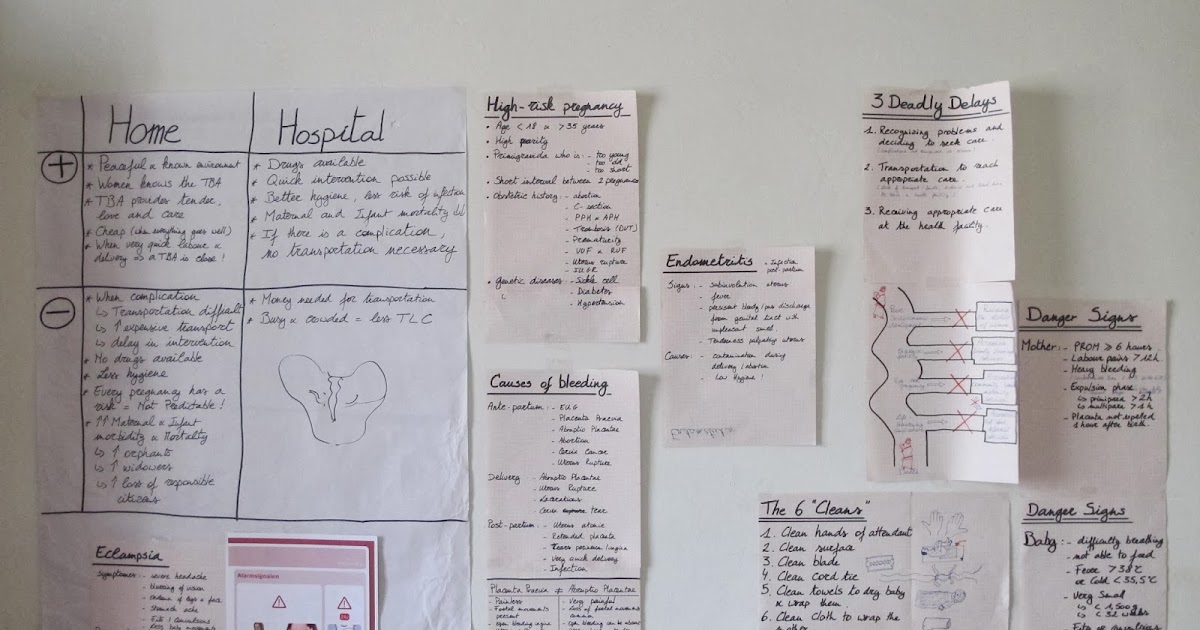 Home
Hospital
+
* Peaceful & known environment
* Women knows the TBA
* TBA provides tender,
love and care
* Cheap (when everything goes well)
* When very quick labour &
delivery → a TBA is close!
* Drugs available
* Quick intervention possible
* Better hygiene, less risk of infection
* Maternal and Infant mortality
* If there is a complication,
no transportation necessary
-
* When complication
↳ Transportation difficult
↳ ↑ expensive transport
↳ delay in intervention
* No drugs available
* Less hygiene
* Every pregnancy has a
risk = Not Predictable!
* ↑↑ Maternal & Infant
morbidity & Mortality
↳ ↑ orphants
↳ ↑ widowers
↳ ↑ loss of responsible
citizens
* Money needed for transportation
* Busy & crowded = less TLC
Eclampsia
Symptomes: - severe headache
- blurring of vision
- Oedema of legs & face
- Stomach ache
- Fits / Convulsions
Alarmsignalen
High-risk pregnancy
• Age < 18 or > 35 years
• High parity
• Primigravida who is - too young
- too old
- too short
• Short interval between 2 pregnancies
• Obstetric history: - abortion
- C-section
- PPH or APH
- Trombosis (DVT)
- Prematurity
- VVF or RVF
- Uterus rupture
- IUGR
• genetic diseases: - Sickle cell
- Diabetes
- Hypertension
Causes of bleeding
Ante-partum: - EUG
- Placenta Praevia
- Abruptio Placentae
- Abortion
- Cervix Cancer
- Uterus Rupture
Delivery - Abruptio Placentae
- Uterus Rupture
- Lacerations
- Cervix tear
Post-partum: - Uterus atonie
- Retained placenta
- Tears perineum/vagina
- Very quick delivery
- Infection
Placenta Praevia ≠ Abruptio Placentae
- Painless
- Foetal movements
present
- Very painful
- Loss of foetal movements
Endometritis - Infection
post-partum
Signs: - subinvolution uterus
- fever
- persistent bloody/pus discharge
from genital tract with
unpleasant smell.
- Tenderness palpating uterus
Causes: - contamination during
delivery / abortion
- Low Hygiene!
3 Deadly Delays
1. Recognizing problems and
deciding to seek care.
2. Transportation to reach
appropriate care.
3. Receiving appropriate care
at the health facility.
Danger Signs
Mother: - PROM ≥ 6 hours
- Labour pains > 12h
- Heavy bleeding
- Expulsion phase
↳ primipara > 2h
↳ multipara > 1h
- Placenta not expelled
1 hour after birth.
The 6 "Cleans"
1. Clean hands of attendant
2. Clean surface
3. Clean blade
4. Clean cord tie
5. Clean towels to dry baby
& wrap them.
6. Clean cloth to wrap the
mother
Danger Signs
Baby: - difficulty breathing
- not able to feed
- Fever > 38°C
or Cold < 35,5°C
- Very Small
↳ < 1,500g
↳ < 32 weeks